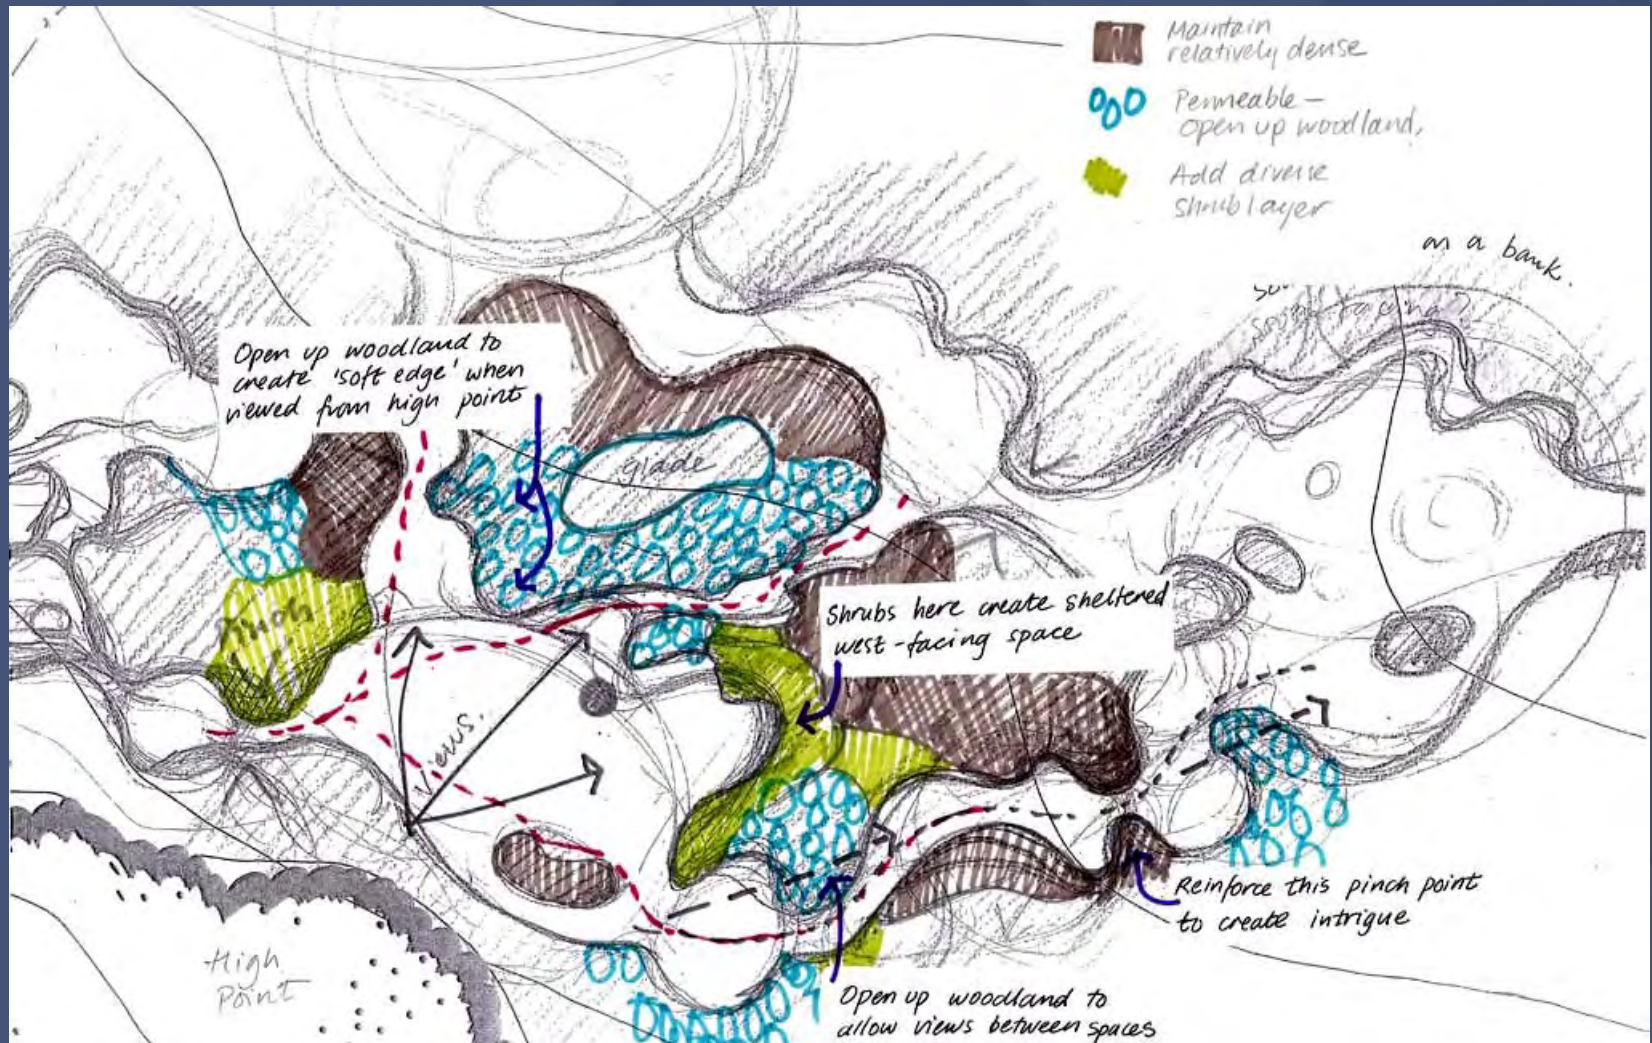 Maintain
relatively dense
Permeable –
open up woodland,
Add diverse
shrub layer
on a bank.
Open up woodland to
create 'soft edge' when
viewed from high point
glade
Shrubs here create sheltered
west-facing space
Views.
Reinforce this pinch point
to create intrigue
High
Point
Open up woodland to
allow views between spaces